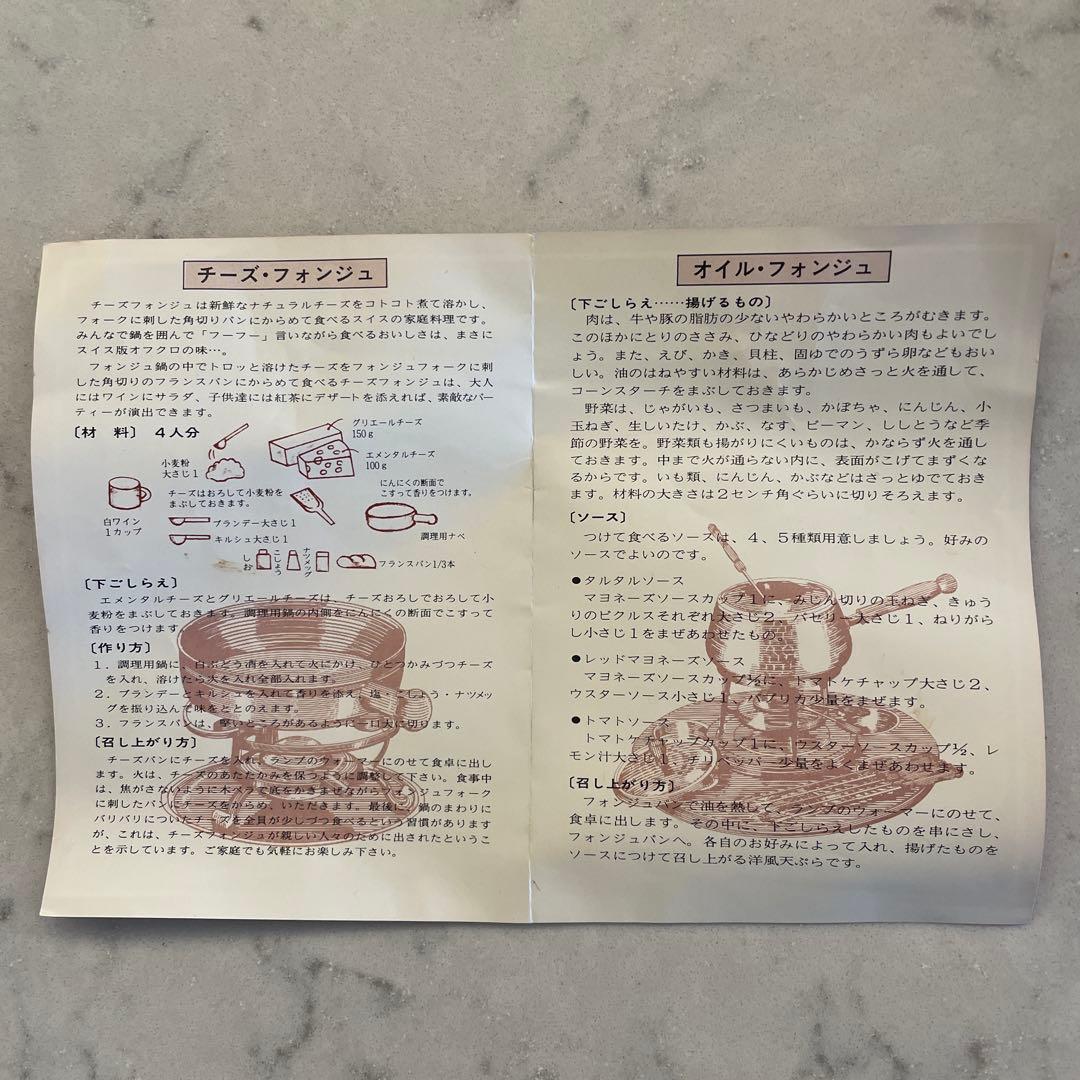 チーズ・フォンジュ
チーズフォンジュは新鮮なナチュラルチーズをコトコト煮て溶かし、
フォークに刺した角切りパンにからめて食べるスイスの家庭料理です。
みんなで鍋を囲んで「フーフー」言いながら食べるおいしさは、まさに
スイス版オフクロの味…。
フォンジュ鍋の中でトロッと溶けたチーズをフォンジュフォークに刺
した角切りのフランスパンにからめて食べるチーズフォンジュは、大人
にはワインにサラダ、子供達には紅茶にデザートを添えれば、素敵なパー
ティーが演出できます。
〔材　料〕　4人分
グリエールチーズ
150g
エメンタルチーズ
100g
小麦粉
大さじ1
チーズはおろして小麦粉を
まぶしておきます。
にんにくの断面で
こすって香りをつけます。
白ワイン
1カップ
ブランデー大さじ1
キルシュ大さじ1
調理用ナベ
しお
こしょう
ナツメッグ
フランスパン1/3本
〔下ごしらえ〕
エメンタルチーズとグリエールチーズは、チーズおろしでおろして小
麦粉をまぶしておきます。調理用鍋の内側をにんにくの断面でこすって
香りをつけます。
〔作り方〕
1．調理用鍋に、白ぶどう酒を入れて火にかけ、ひとつかみづつチーズ
を入れ、溶けたら火を入れ全部入れます。
2．ブランデーとキルシュを入れて香りを添え、塩・こしょう・ナツメッ
グを振り込んで味をととのえます。
3．フランスパンは、堅いところがあるように一口大に切ります。
〔召し上がり方〕
チーズパンにチーズを入れ、ランプのウォーマーにのせて食卓に出し
ます。火は、チーズのあたたかみを保つように調整して下さい。食事中
は、焦がさないように木ベラで底をかきまぜながらフォンジュフォーク
に刺したパンにチーズをからめ、いただきます。最後に、鍋のまわりに
バリバリについたチーズを全員が少しづつ食べるという習慣があります
が、これは、チーズフォンジュが親しい人々のために出されたというこ
とを示しています。ご家庭でも気軽にお楽しみ下さい。
オイル・フォンジュ
〔下ごしらえ……揚げるもの〕
肉は、牛や豚の脂肪の少ないやわらかいところがむきます。
このほかにとりのささみ、ひなどりのやわらかい肉もよいでし
ょう。また、えび、かき、貝柱、固ゆでのうずら卵などもおい
しい。油のはねやすい材料は、あらかじめさっと火を通して、
コーンスターチをまぶしておきます。
野菜は、じゃがいも、さつまいも、かぼちゃ、にんじん、小
玉ねぎ、生しいたけ、かぶ、なす、ピーマン、ししとうなど季
節の野菜を。野菜類も揚がりにくいものは、かならず火を通し
ておきます。中まで火が通らない内に、表面がこげてまずくな
るからです。いも類、にんじん、かぶなどはさっとゆでておき
ます。材料の大きさは2センチ角ぐらいに切りそろえます。
〔ソース〕
つけて食べるソースは、4、5種類用意しましょう。好みの
ソースでよいのです。
●タルタルソース
マヨネーズソースカップ1に、みじん切りの玉ねぎ、きゅう
りのピクルスそれぞれ大さじ2、パセリー大さじ1、ねりがら
し小さじ1をまぜあわせたもの。
●レッドマヨネーズソース
マヨネーズソースカップ½に、トマトケチャップ大さじ2、
ウスターソース小さじ1、パプリカ少量をまぜます。
●トマトソース
トマトケチャップカップ1に、ウスターソースカップ½、レ
モン汁大さじ1、チリペッパー少量をよくまぜあわせます。
〔召し上がり方〕
フォンジュパンで油を熱して、ランプのウォーマーにのせて、
食卓に出します。その中に、下ごしらえしたものを串にさし、
フォンジュパンへ。各自のお好みによって入れ、揚げたものを
ソースにつけて召し上がる洋風天ぷらです。